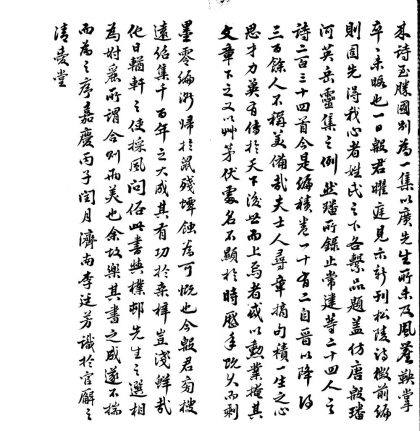 別為一集以廣先生所未及風塵鞅掌
卒卒未暇也一日殷君曜庭見示新刊松陵詩徵前編
則固先得我心者姓氏之下各繫品題蓋仿唐殷璠
河英岳靈集之例然璠所錄止常建等二十四人之
詩二百三十四首今是編積卷一十有二自晉以降得
三百餘人不稱美備哉夫士人尋章摘句積一生之心
思才力莫有傳於天下後世而上焉者咸以勳業掩其
文章下之又以艸茅伏處名不顯於時歷年既久而剩
墨零編漸歸於鼠殘蟫蝕為可慨也今殷君旁搜
遠紹集千百年之大成其有功於桑梓豈淺鮮哉
他日輶軒之使採風問俗此書與樸邨先生之選相
為所謂合則兩美也余故樂其書之成遂不揣
而為之序嘉慶丙子閏月濟南李廷芳識於官廨之
清愛堂